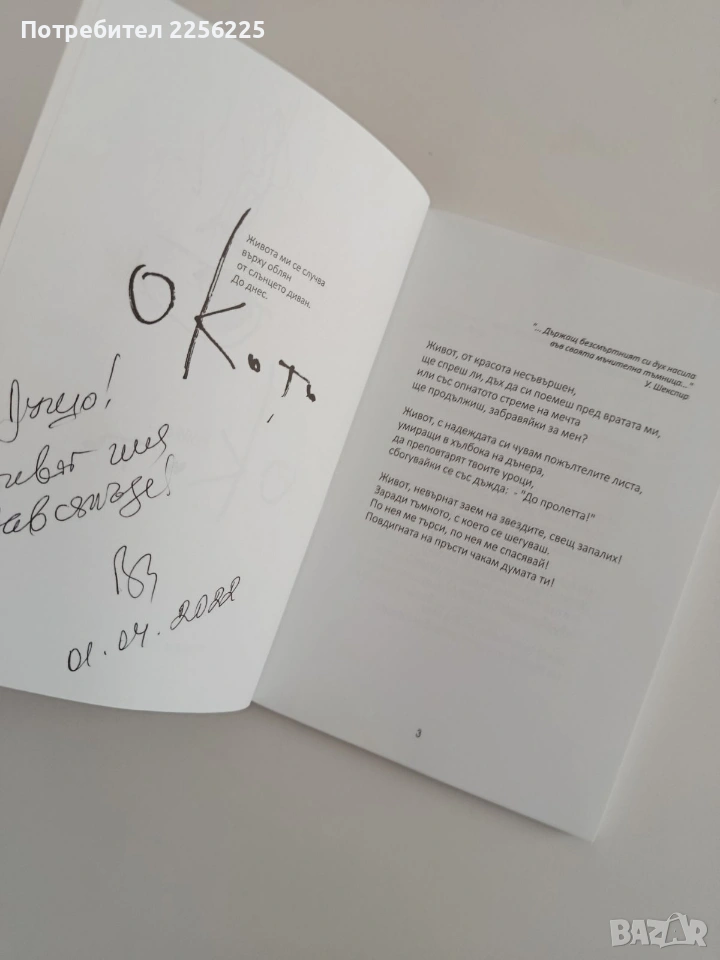 Потребител 2256225
Живота ми се случва
върху облян
от слънцето диван.
До днес.
О К
!
01.04.2022
"... Държащ безсмъртният си дух насила
във своята мъчителна тъмница..."
У. Шекспир
Живот, от красота несъвършен,
ще спреш ли, дъх да си поемеш пред вратата ми,
или със опнатото стреме на мечта
ще продължиш, забравяйки за мен?
Живот, с надеждата си чувам пожълтелите листа,
умиращи в хълбока на дънера,
да преповтарят твоите уроци,
сбогувайки се със дъжда: - "До пролетта!"
Живот, невърнат заем на звездите, свещ запалих!
Заради тъмното, с което се шегуваш.
По нея ме търси, по нея ме спасявай!
Повдигната на пръсти чакам думата ти!
3
BAZAR